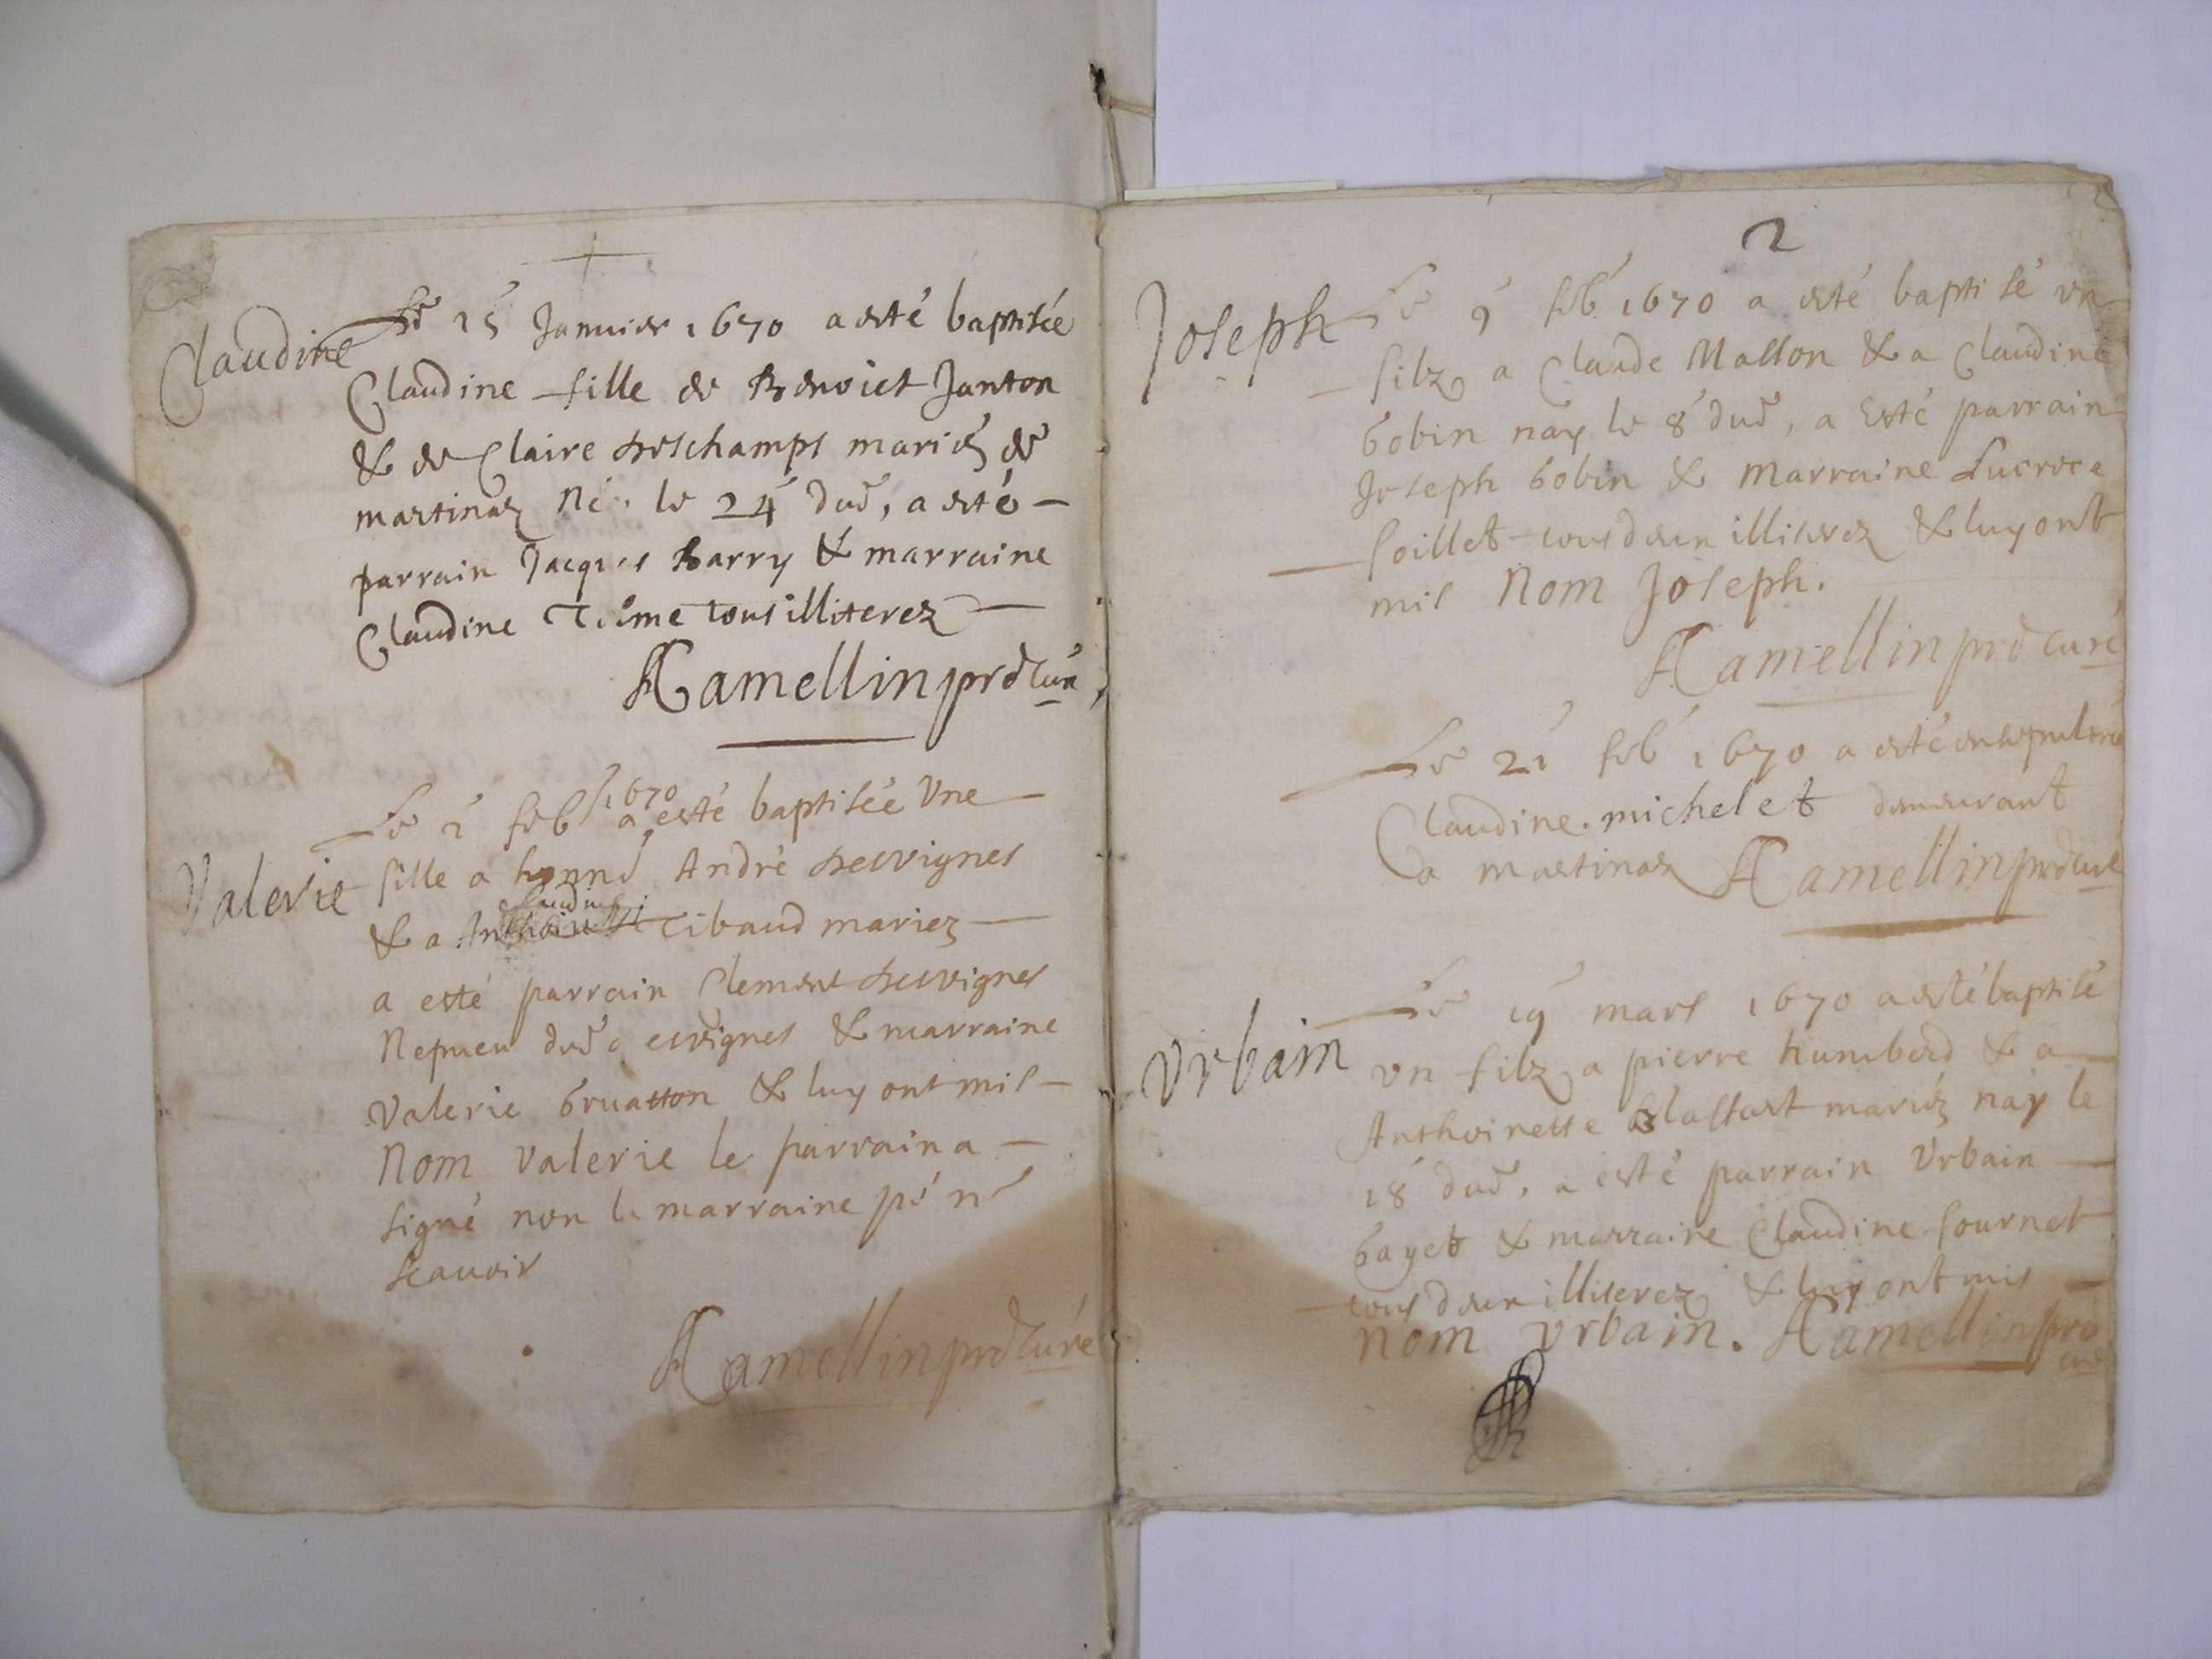 Claudine
Le 25 Januier 1670 a esté baptisée
Claudine fille de Benoict Janton
& de Claire deschamps mariez de
martinas Né le 24 dud, a esté
parrain Jacques Barry & marraine
Claudine tous illiterez
Ramellin prb curé
Valerie
Le 2 feb 1670 a esté baptisée Une
fille a honno André desvignes
& a Claudine Tibaud mariez
a esté parrain Clement desvignes
Nepueu dud desvignes & marraine
Valerie Gruatton & luy ont mis
Nom Valerie le parrain a
signé non la marraine po ne
scauoir
Ramellin prb curé
2
Joseph
Le 9 feb 1670 a esté baptisé vn
filz a Claude Masson & a Claudine
Gobin nay le 8 dud, a Esté parrain
Joseph Gobin & Marraine Lucrece
foillet tous deux illiterez & luy ont
mis Nom Joseph.
Ramellin prb curé
Le 21 feb 1670 a esté ensepulturée
Claudine michelet demeurant
a martinas Ramellin prb curé
Vrbain
Le 19 mars 1670 a esté baptisé
vn filz a pierre humberd & a
Anthoinette mariez nay le
18 dud, a esté parrain Vrbain
Gayet & marraine Claudine fournet
tous deux illiterez & luy ont mis
nom vrbain. Ramellin prb
curé